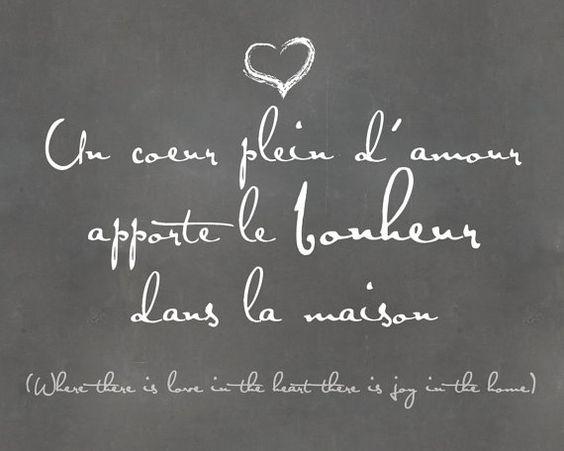 Un coeur plein d'amour
apporte le bonheur
dans la maison
(Where there is love in the heart there is joy in the home)